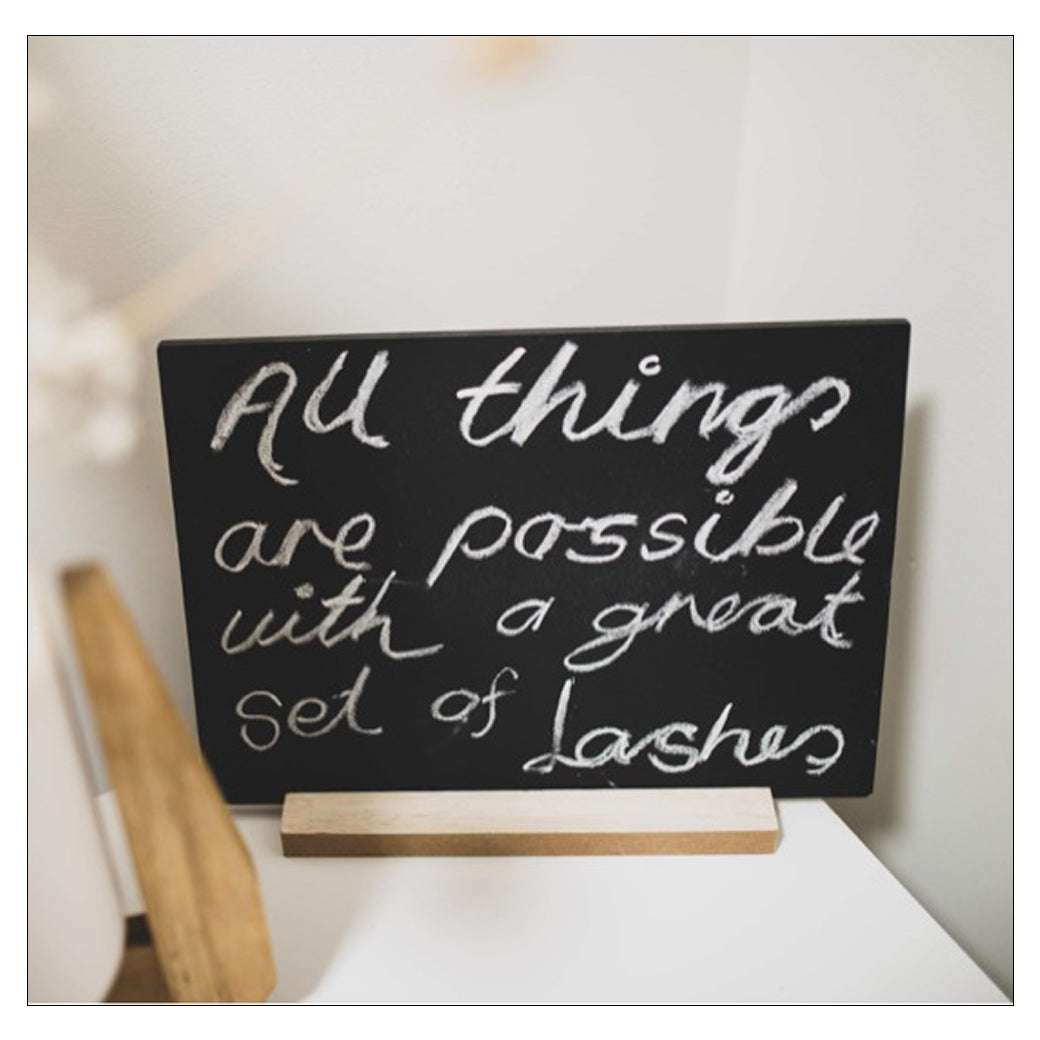 All things
are possible
with a great
set of Lashes